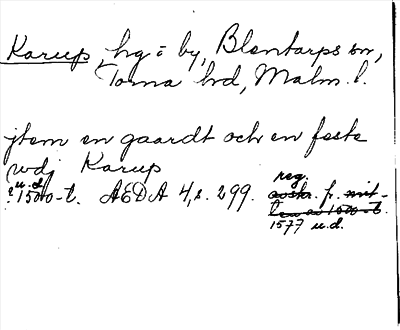 Karup, hg = by, Blentarps sn,
Torna hd, Malm. l.
jtem en gaardt och en feste
wdj Karup
u.d.
? 1500-t. AEDA 4, s. 299. reg.
avskr. fr. mit-
ten av 1500-t.
1577 u.d.